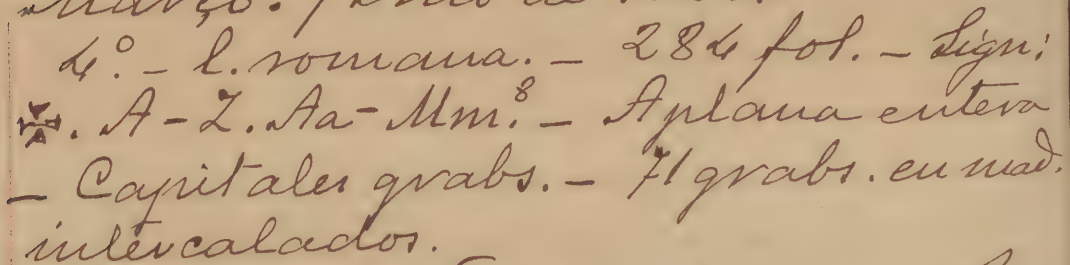 Março.
4º. – l. romana. – 284 fol. – Sign:
✠. A–Z. Aa–Mm.⁸ – A plana entera
– Capitales grabs. – 71 grabs. en mad.
intercalados.